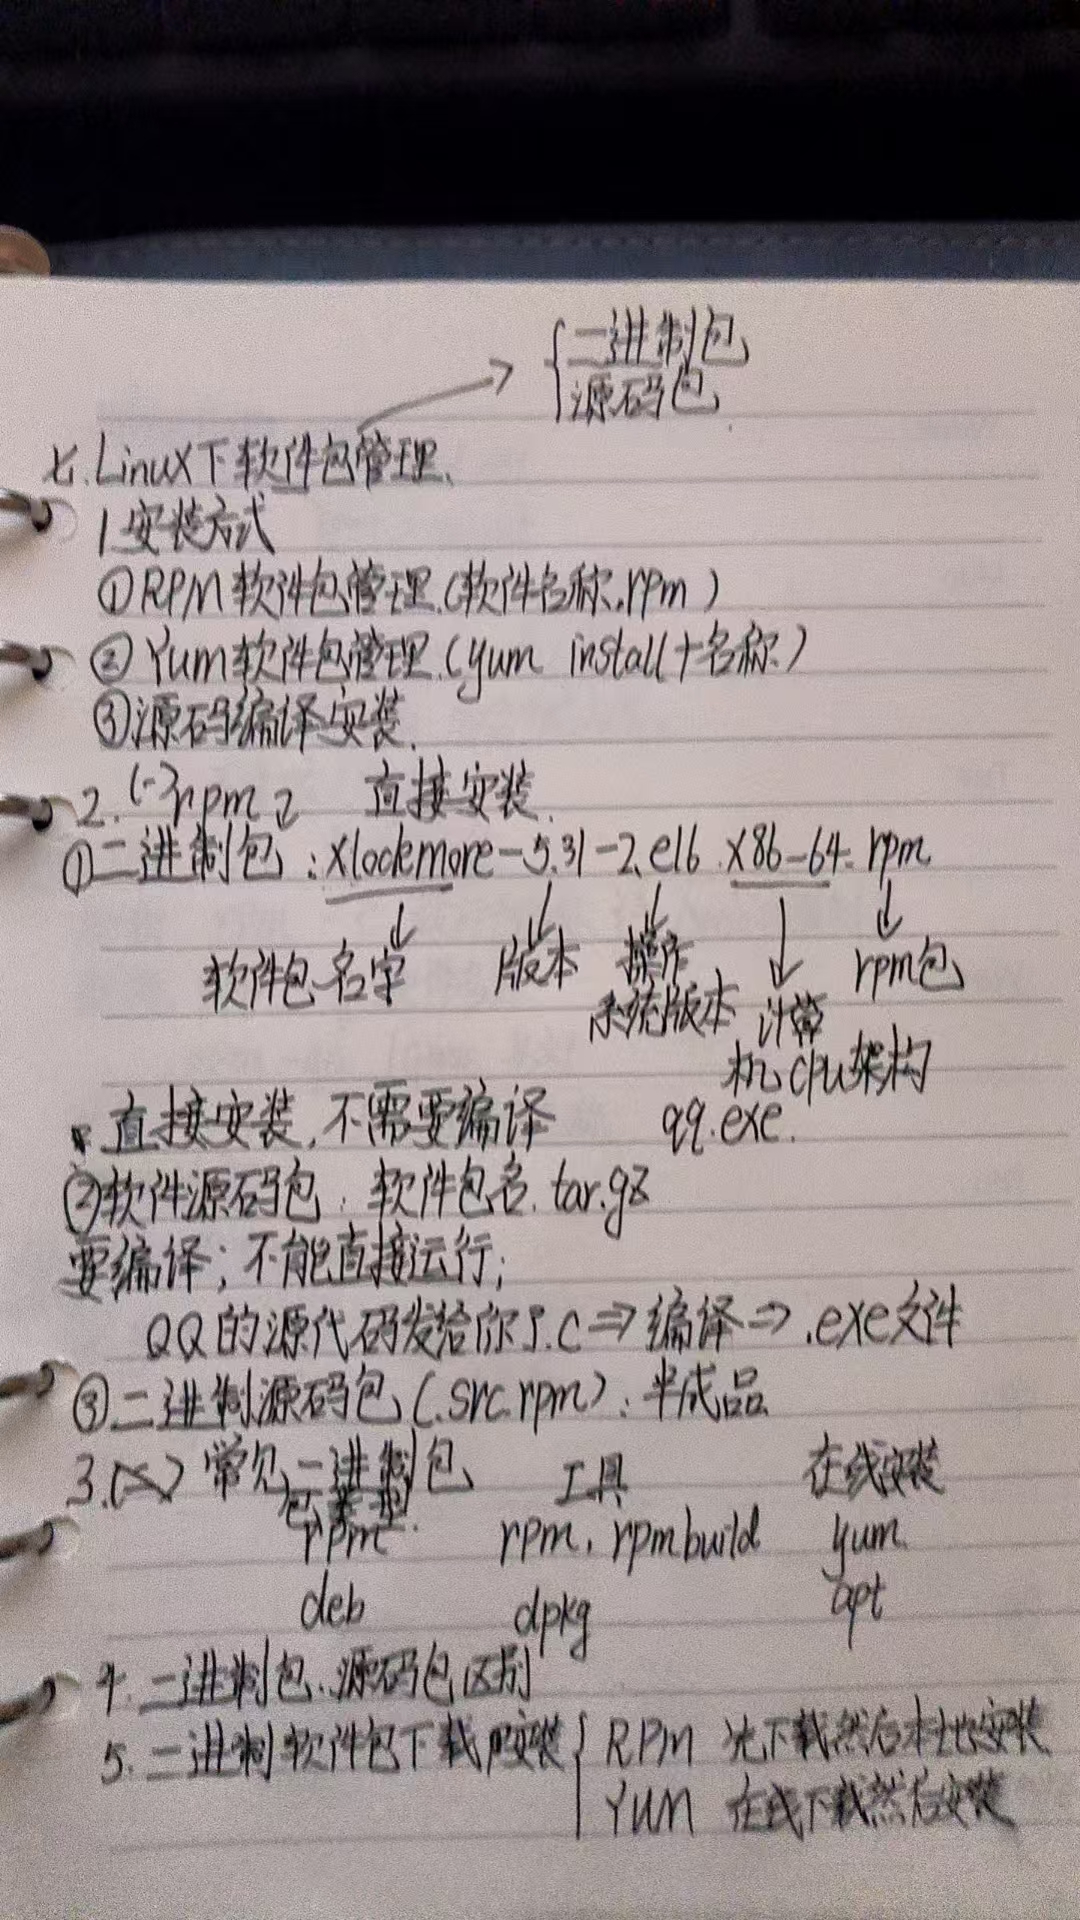 二进制包
源码包
七.Linux下软件包管理.
1.安装方式
①RPM软件包管理.(软件名称.rpm)
②Yum软件包管理.(yum install+名称)
③源码编译安装.
2. rpm 直接安装.
①二进制包:xlockmore-5.31-2.el6.x86-64.rpm
软件包名字 版本 操作系统版本 计算机cpu架构 rpm包
直接安装,不需要编译 qq.exe.
②软件源码包:软件包名.tar.gz
要编译;不能直接运行;
QQ的源代码发给你了.C⇒编译⇒.exe文件
③二进制源码包(.src.rpm):半成品
3. 常见二进制包 工具 在线安装
包类型.
rpm rpm,rpmbuild yum
deb dpkg apt
4.二进制包、源码包区别
5.二进制软件包下载 安装
RPM 先下载然后本地安装
YUM 在线下载然后安装